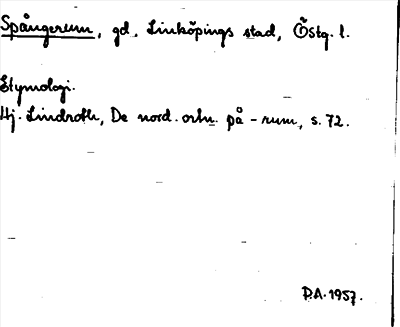 Spångerum, gd, Linköpings stad, Östg. l.
Etymologi.
Hj. Lindroth, De nord. ortn. på -rum, s. 72.
D.A. 1957.